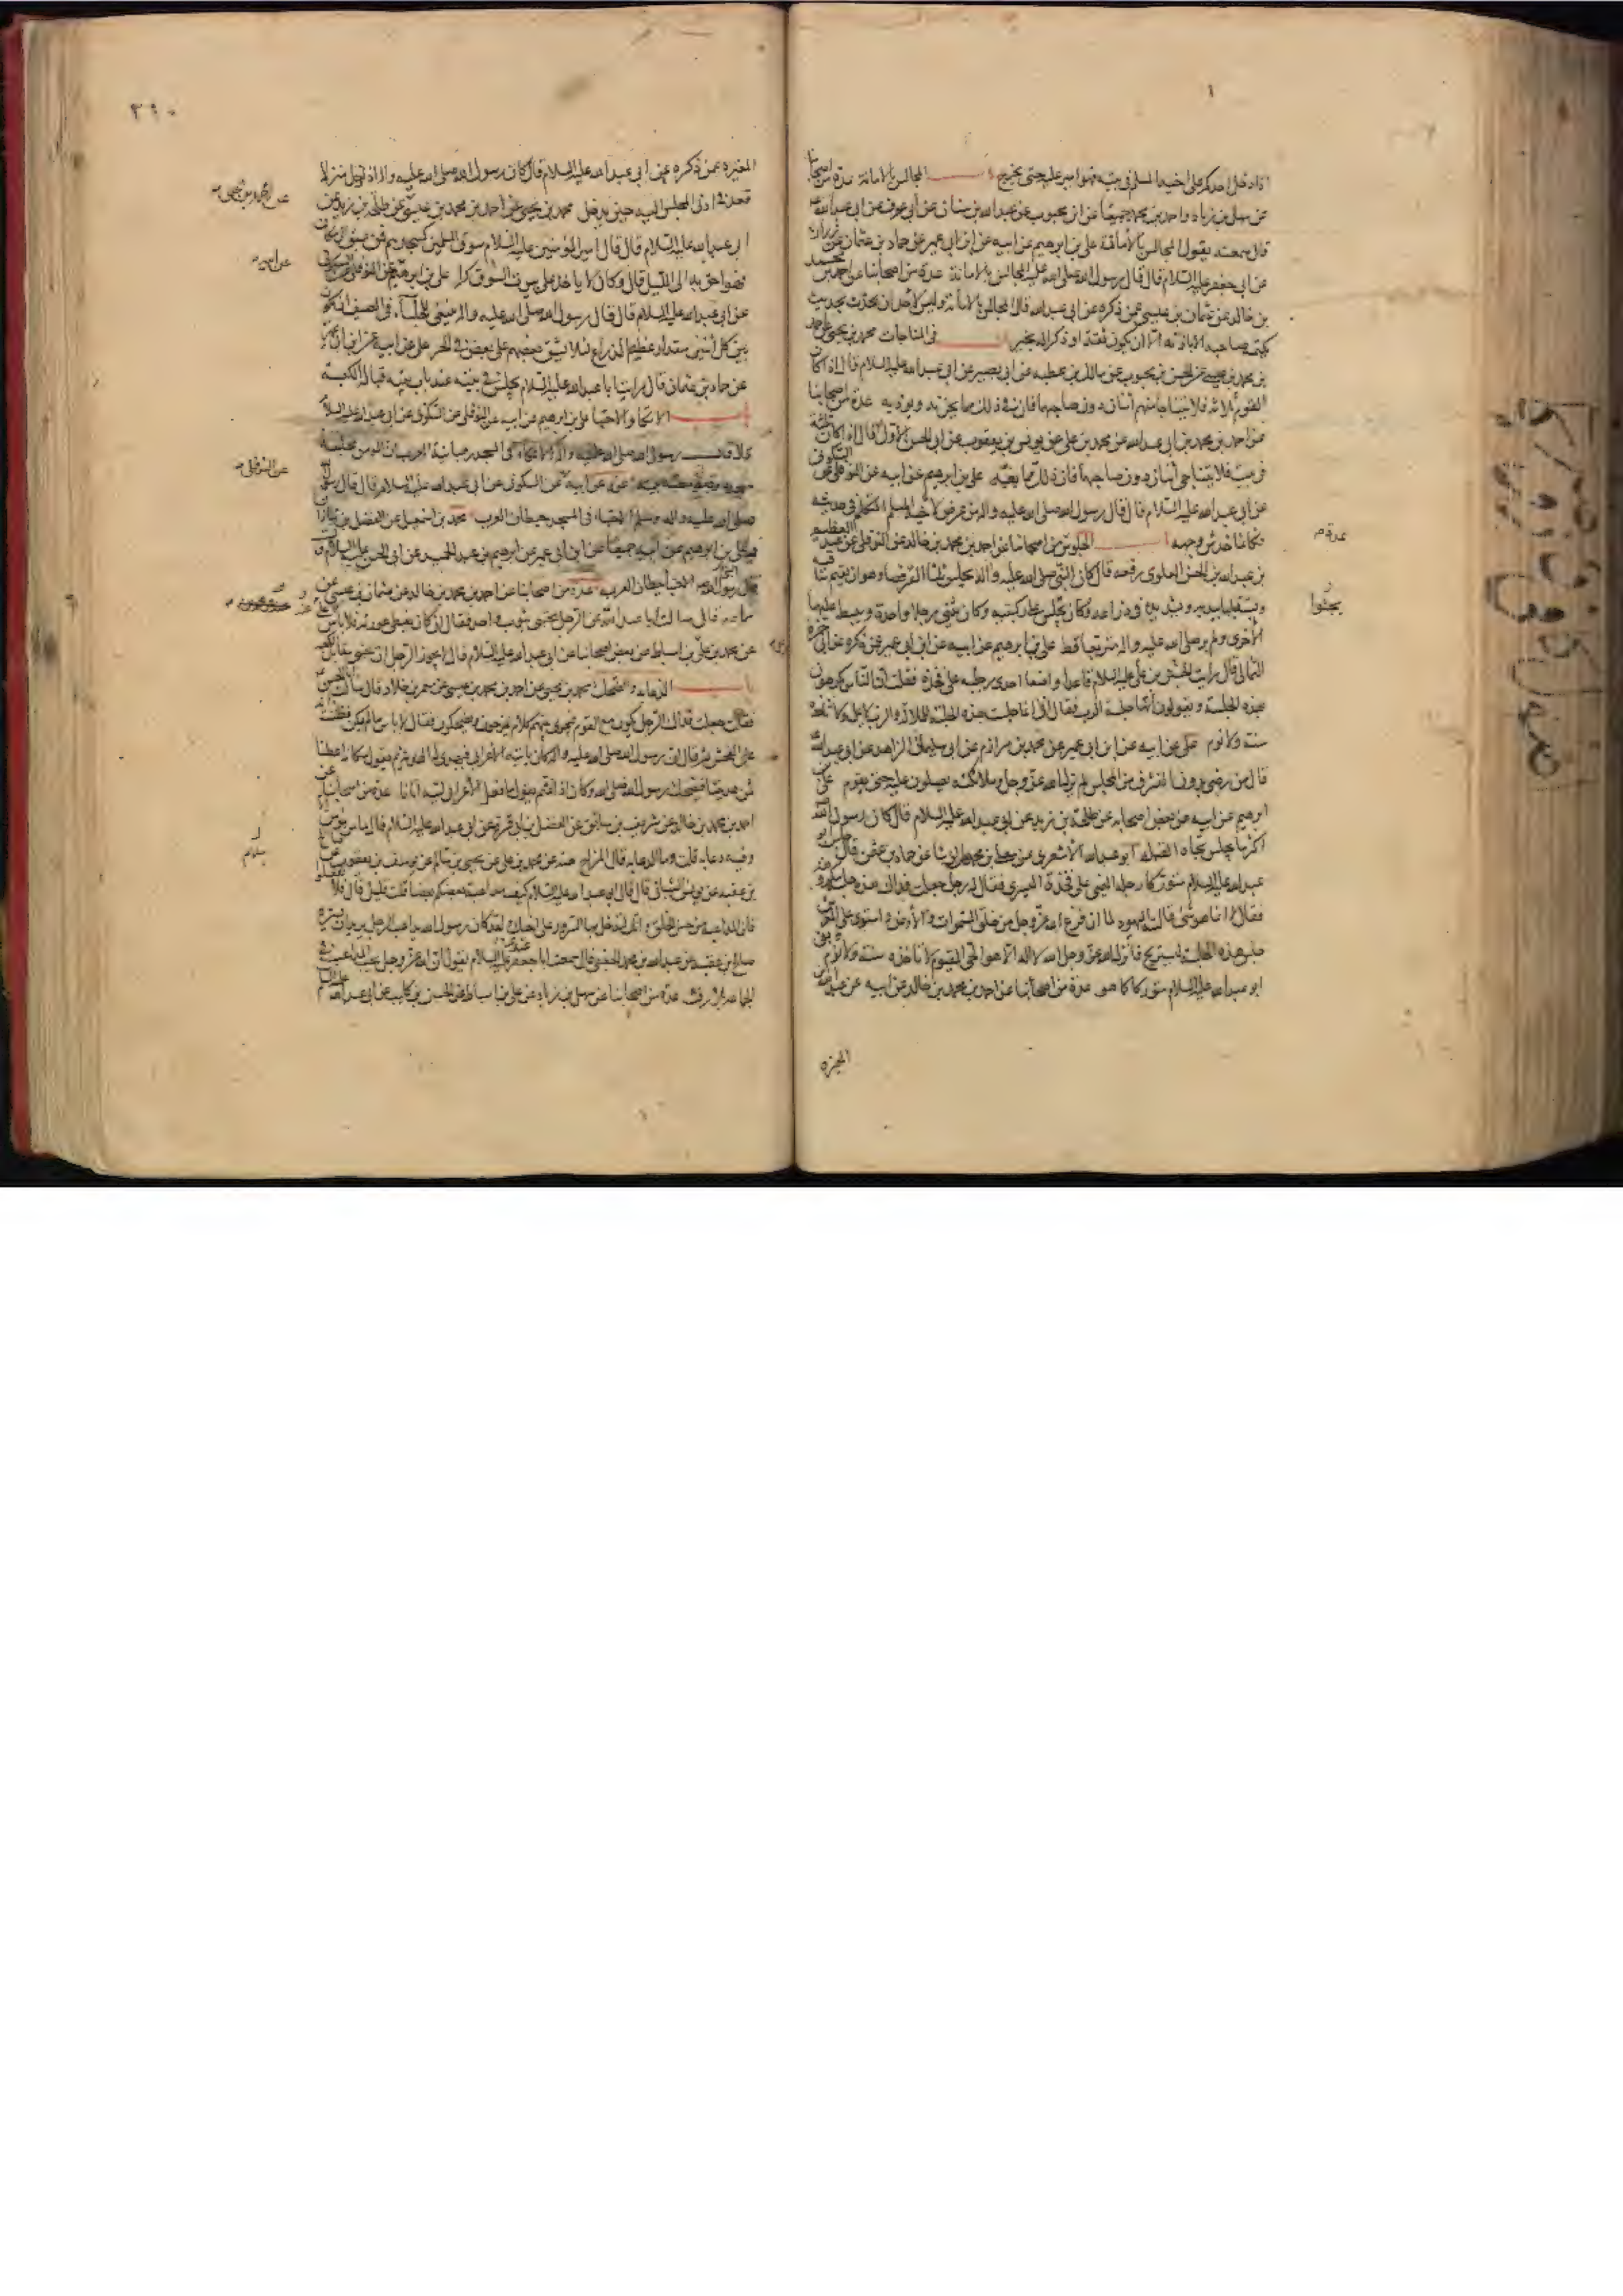 اذا دخل احدكم على اخيه المسلم فى بيته فهو امير عليه حتى يخرج باب المجالس بالامانة عدة من اصحابنا
عن سهل بن زياد واحمد بن محمد جميعا عن ابن محبوب عن عبد الله بن سنان عن ابى عوف عن ابى عبد الله
قال سمعته يقول المجالس بالأمانة على بن ابرهيم عن ابيه عن ابن ابى عمير عن حماد بن عثمان عن زرارة
عن ابى جعفر عليه السلام قال قال رسول الله صلى الله عليه المجالس بالامانة عدة من اصحابنا عن احمد بن محمد
بن خالد عن عثمان بن عيسى عمن ذكره عن ابى عبد الله قال المجالس بالامانة وليس لأحد ان يحدث بحديث
يكتمه صاحبه الا باذنه الا ان يكون ثقة او ذكرا له بخير باب فى المناجات محمد بن يحيى عن احمد
بن محمد بن عيسى عن الحسن بن محبوب عن مالك بن عطيه عن ابى بصير عن ابى عبد الله عليه السلام قال اذا كان
القوم ثلاثه فلا يتناجا منهم اثنان دون صاجبهما فان فى ذلك مما يحزنه ويوذيه عدة من اصحابنا
عن احمد بن محمد بن ابى عبد الله عن محمد بن على عن يونس بن يعقوب عن ابى الحسن الاول قال اذا كان ثلثة
فى بيت فلا يتناجى اثنان دون صاجبهما فان ذلك مما يغمه على بن ابرهيم عن ابيه عن النوفلى عن السكونى
عن ابى عبد الله عليه السلام قال قال رسول الله صلى الله عليه واله من عرض لأخيه المسلم المتكلم فى حديثه
فكانما خدش وجهه باب الجلوس عدة من اصحابنا عن احمد بن محمد بن خالد عن النوفلى عن عبد العظيم
بن عبد الله بن الحسن العلوى رفعه قال كان النبى صلى الله عليه واله يجلس ثلثا القرفصا وهو ان يقيم ساقيه
ويستقبلها بيديه ويشد يده فى ذراعه وكان يجثى على ركبتيه وكان يثنى رجلا واحدة ويبسط عليها
الأخرى ولم ير صلى الله عليه واله متربعا قط على بن ابرهيم عن ابيه عن ابن ابى عمير عمن ذكره عن ابى حمزة
الثمالى قال رايت على بن الحسين عليه السلام قاعدا واضعا احدى رجليه على فخذه فقلت ان الناس يكرهون
هذه الجلسة ويقولون أنها جلسة الرب فقال انى انما جلست هذه الجلسة للملالة والرب لا يمل ولا تاخذه
سنة ولا نوم على عن ابيه عن ابن ابى عمير عن محمد بن مرازم عن ابى سليمان الزاهد عن ابى عبد الله
قال من رضى بدون التشرف من المجلس لم يزل الله عز وجل وملائكته يصلون عليه حتى يقوم على بن
ابرهيم عن ابيه عن بعض اصحابه عن طلحة بن زيد عن ابى عبد الله عليه السلام قال كان رسول الله
اكثر ما يجلس تجاه القبلة ابو عبد الله الأشعرى عن معلى بن محمد عن الوشا عن حماد بن عثمن قال جلس ابو
عبد الله عليه السلام متوركا رجله اليمنى على فخذة اليسرى فقال له رجل جعلت فداك هذه جلسة مكروهة
فقال لا انما هو شئ قالته اليهود لما ان فرغ الله عز وجل من خلق السموات والأرض واستوى على العرش
جلس هذه الجلسة ليستريح فأنزل الله عز وجل الله لا اله الا هو الحى القيوم لا تاخذه سنة ولا نوم وبقى
ابو عبد الله عليه السلام متوركا كما هو عدة من اصحابنا عن احمد بن محمد بن خالد عن ابيه عن عبد الله بن
يجثوا
المغيره
٣٩٠
المغيره عمن ذكره عن ابى عبد الله عليه السلام قال كان رسول الله صلى الله عليه واله اذا دخل منزلا
قعد فى ادنى المجلس اليه حين يدخل محمد بن يحيى عن أحمد بن محمد بن عيسى عن طلحة بن زيد عن
ابى عبد الله عليه السلام قال قال امير المؤمنين عليه السلام سوق المسلمين كمسجدهم فمن سبق الى مكان
فهو احق به الى الليل قال وكان لا ياخذ على بيوت السوق كرا على بن ابرهيم عن النوفلى عن السكونى
عن ابى عبد الله عليه السلام قال قال رسول الله صلى الله عليه واله ينبغى للجلساء فى الصيف ان يكون
بين كل أثنين مقدار عظم الذراع لئلا يشق بعضهم على بعض فى الحر على عن ابيه عن ابن ابى عمير
عن حماد بن عثمان قال رايت ابا عبد الله عليه السلام يجلس فى بيته عند باب بيته قباله الكعبة
باب الاتكا والاحتبا على بن ابرهيم عن ابيه عن النوفلى عن السكونى عن ابى عبد الله عليه السلام
قال قال رسول الله صلى الله عليه واله الاتكاء فى المسجد رهبانية العرب ان المومن مجلسه
مسجده وصومعته بيته عن ابيه عن السكونى عن ابى عبد الله عليه السلام قال قال رسول الله
صلى الله عليه واله وسلم الاحتباء فى المسجد حيطان العرب محمد بن اسمعيل عن الفضل بن شاذان
وعلى بن ابرهيم عن ابيه جميعا عن ابن ابى عمير عن ابرهيم بن عبد الحميد عن ابى الحسن عليه السلام قال
قال رسول الله الاحتبا حيطان العرب عدة من اصحابنا عن احمد بن محمد بن خالد عن عثمان بن عيسى عن
سماعه قال سالت ابا عبد الله عن الرجل يحتبى بثوب واحد فقال ان كان يغطى عورته فلا باس
عن محمد بن على بن اسباط عن بعض اصحابنا عن ابى عبد الله عليه السلام قال لا يجوز للرجل ان يحتبى مقابل الكعبه
باب الدعابه والضحك محمد بن يحيى عن احمد بن محمد بن عيسى عن معمر بن خلاد قال سالت ابا الحسن
فقلت جعلت فداك الرجل يكون مع القوم فيجرى بينهم كلام يمزحون ويضحكون فقال لا باس ما لم يكن فظننت انه
عنى الفحش ثم قال ان رسول الله صلى الله عليه واله كان ياتيه الأعرابى فيهدى له الهديه ثم يقول مكانه اعطنا
ثمن هديتنا فيضحك رسول الله صلى الله وكان اذا اغتم يقول ما فعل الأعرابى ليته أتانا عدة من اصحابنا عن
احمد بن محمد بن خالد عن شريف بن سابق عن الفضل بن ابى قرة عن ابى عبد الله عليه السلام قال ما من مؤمن الا
وفيه دعابه قلت وما الدعابه قال المزاح عنه عن محمد بن على عن يحيى بن سالم عن يوسف بن يعقوب عن صالح
بن عقبه عن يونس الشيبانى قال قال ابى عبد الله عليه السلام كيف مداعبة بعضكم بعضا قلت قليل قال فلا تفعلوا
فان المداعبه من حسن الخلق وانك لتدخل بها السرور على اخيك ولقد كان رسول الله يداعب الرجل يريد ان يسره
صالح بن عقبه عن عبد الله بن محمد الجعفى قال سمعت ابا جعفر عليه السلام يقول ان الله عز وجل يحب المداعب فى
الجماعه بلا رفث عدة من اصحابنا عن سهل بن زياد عن على بن اسباط عن الحسن بن كليب عن ابى عبد الله عليه السلام
عن محمد بن يحيى
عن ابيه
عن النوفلى
سلام